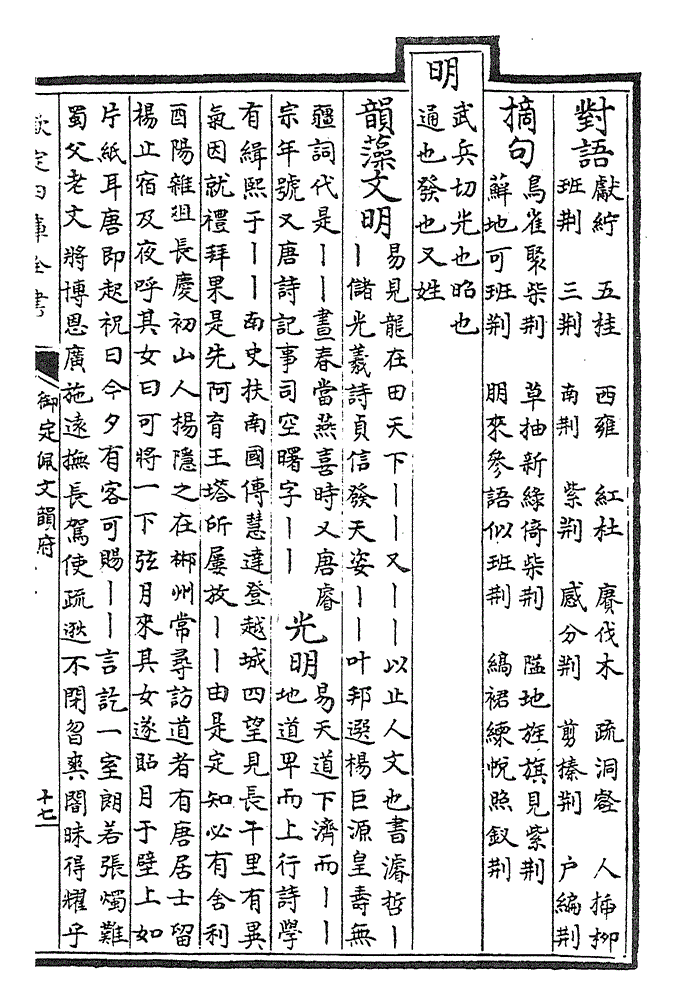 對語
獻紵 五桂 西雍 紅杜 賡伐木 疏洞壑 人插柳
班荆 三荆 南荆 紫荆 感分荆 剪榛荆 户編荆
摘句
鳥雀聚柴荆 草抽新綠倚柴荆 隘地旌旗見紫荆
蘚地可班荆 朋來參語似班荆 縞裙練帨照釵荆
明
武兵切光也昭也
通也發也又姓
韻藻文明
易見龍在田天下丨丨又丨丨以止人文也書濬哲丨
丨儲光羲詩貞信發天姿丨丨叶邦選楊巨源皇壽無
疆詞代是丨丨晝春當燕喜時又唐睿
宗年號又唐詩記事司空曙字丨丨
光明
易天道下濟而丨丨
地道卑而上行詩學
有緝熙于丨丨南史扶南國傳慧達登越城四望見長千里有異
氣因就禮拜果是先阿育王塔所屢放丨丨由是定知必有舍利
酉陽雜俎長慶初山人楊隱之在郴州常尋訪道者有唐居士留
楊止宿及夜呼其女曰可將一下弦月來其女遂貼月于壁上如
片紙耳唐即起祝曰今夕有客可賜丨丨言訖一室朗若張燭難
蜀父老文將博恩廣施遠撫長駕使疏逖不閉曶爽闇昧得耀乎
欽定四庫全書
御定佩文韻府
十七